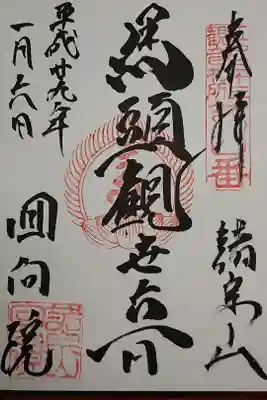 奉拝
諸宗山
馬頭觀世音
平成廿九年
一月六日
回向院